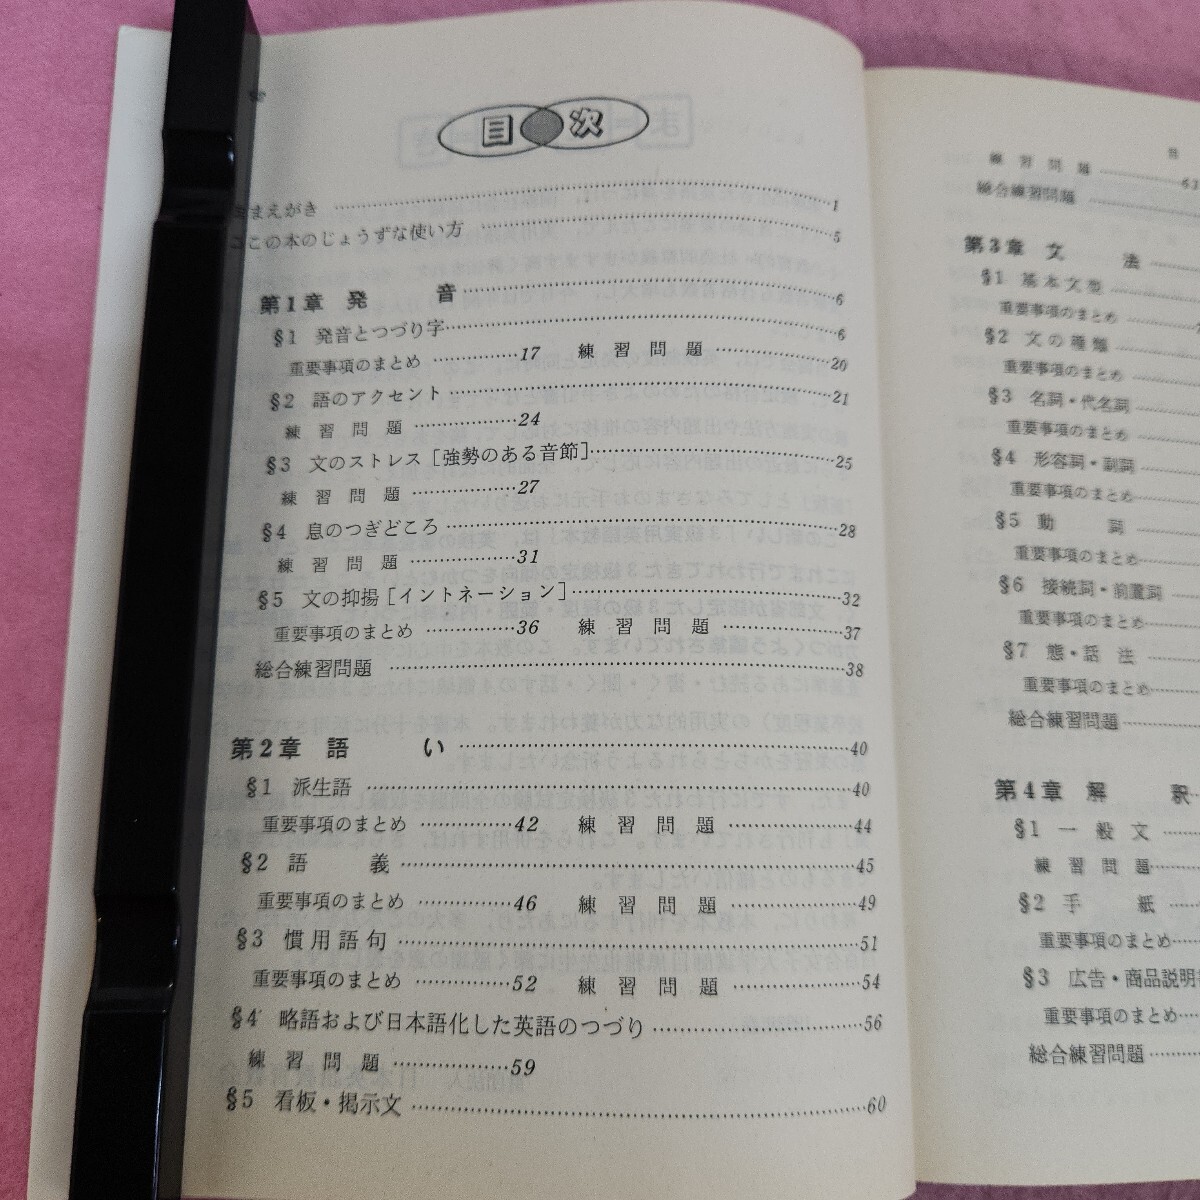 目次
まえがき 1
この本のじょうずな使い方 5
第1章 発 音 6
§1 発音とつづり字 6
重要事項のまとめ 17 練習問題 20
§2 語のアクセント 21
練習問題 24
§3 文のストレス［強勢のある音節］ 25
練習問題 27
§4 息のつぎどころ 28
練習問題 31
§5 文の抑揚［イントネーション］ 32
重要事項のまとめ 36 練習問題 37
総合練習問題 38
第2章 語 い 40
§1 派生語 40
重要事項のまとめ 42 練習問題 44
§2 語 義 45
重要事項のまとめ 46 練習問題 49
§3 慣用語句 51
重要事項のまとめ 52 練習問題 54
§4 略語および日本語化した英語のつづり 56
練習問題 59
§5 看板・掲示文 60
目
練習問題 61
総合練習問題
第3章 文 法
§1 基本文型
重要事項のまとめ
§2 文の種類
重要事項のまとめ
§3 名詞・代名詞
重要事項のまとめ
§4 形容詞・副詞
重要事項のまとめ
§5 動 詞
重要事項のまとめ
§6 接続詞・前置詞
重要事項のまとめ
§7 態・話法
重要事項のまとめ
総合練習問題
第4章 解 釈
§1 一般文
練習問題
§2 手 紙
重要事項のまとめ
§3 広告・商品説明書
重要事項のまとめ
総合練習問題